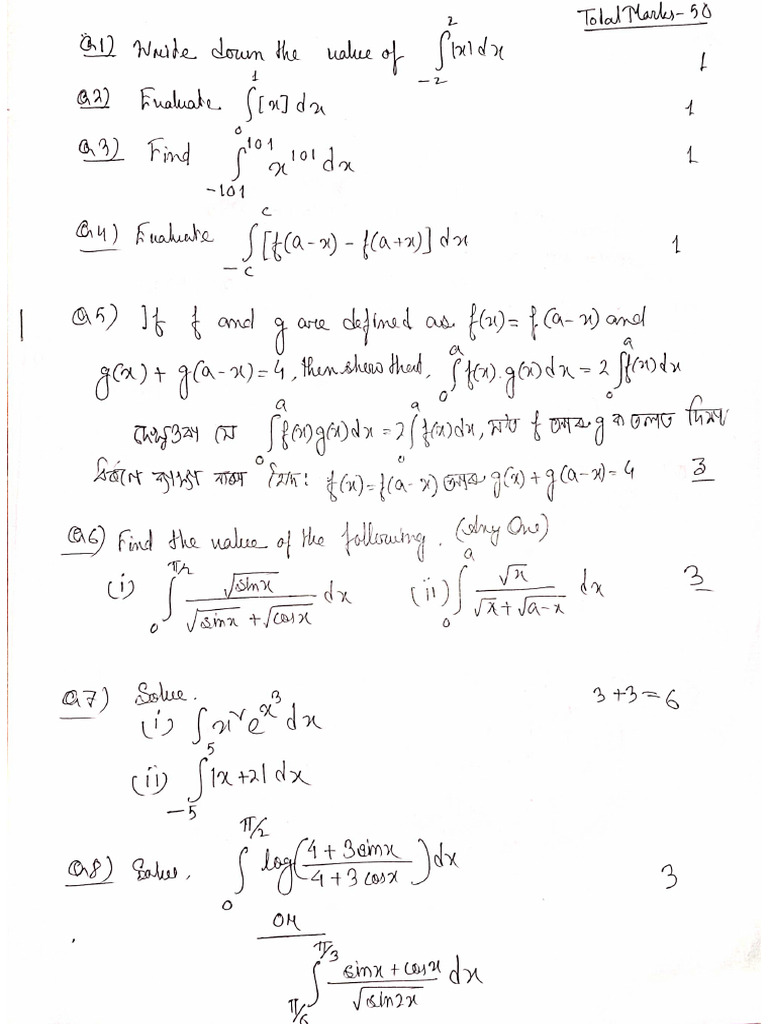 Total Marks - 50
Q1) Write down the value of ∫_{-2}^{2} |x| dx 1
Q2) Evaluate ∫_0^1 [x] dx 1
Q3) Find ∫_{-101}^{101} x^{101} dx 1
Q4) Evaluate ∫_{-c}^{c} [f(a-x) - f(a+x)] dx 1
Q5) If f and g are defined as f(x) = f(a-x) and
g(x) + g(a-x) = 4, then show that, ∫_0^a f(x).g(x) dx = 2 ∫_0^a f(x) dx
দেখুওৱা যে ∫_0^a f(x) g(x) dx = 2 ∫_0^a f(x) dx, যত f আৰু g ক তলত দিয়া
ধৰণে f(x) = f(a-x) আৰু g(x) + g(a-x) = 4 3
Q6) Find the value of the following. (Any One)
(i) ∫_0^{π/2} √sinx / (√sinx + √cosx) dx (ii) ∫_0^a √x / (√x + √a-x) dx 3
Q7) Solve. 3+3=6
(i) ∫ x² e^{x³} dx
(ii) ∫_{-5}^{5} |x+2| dx
Q8) Solve. ∫_0^{π/2} log((4+3sinx)/(4+3cosx)) dx 3
OR
∫_{π/6}^{π/3} (sinx + cosx)/√sin2x dx